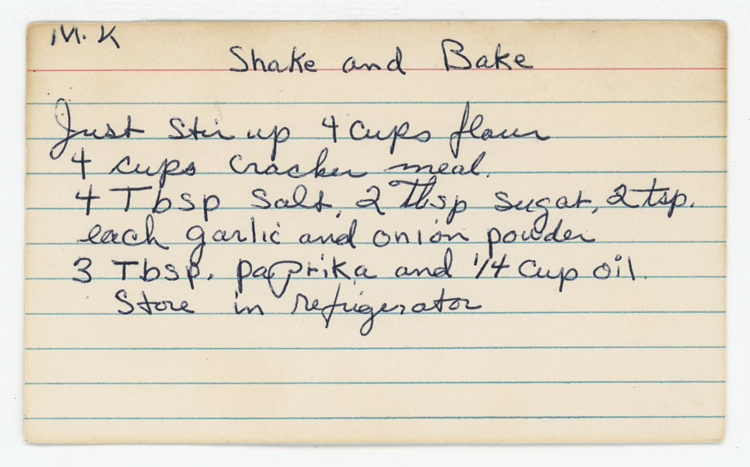 M.K
Shake and Bake
Just stir up 4 cups flour
4 cups cracker meal.
4 Tbsp salt, 2 Tbsp sugar, 2 tsp.
each garlic and onion powder
3 Tbsp. paprika and 1/4 cup oil.
Store in refrigerator